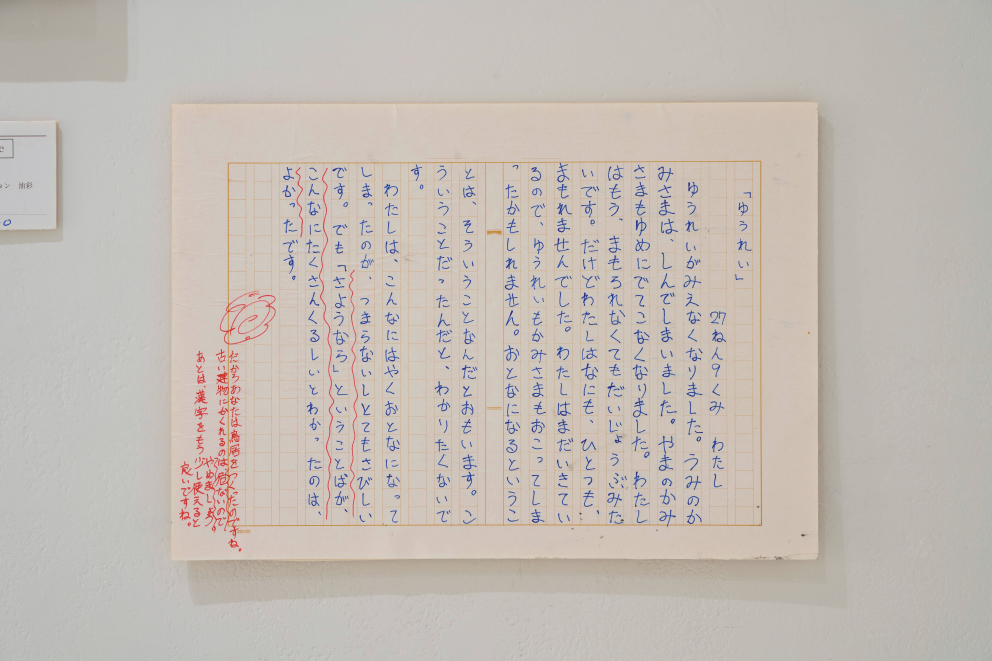 「ゆうれい」
27ねん9くみ　わたし
ゆうれいがみえなくなりました。うみのか
みさまは、しんでしまいました。やまのかみ
さまもゆめにでてこなくなりました。わたし
はもう、まもられなくてもだいじょうぶみた
いです。だけどわたしはなにも、ひとつも、
まもれませんでした。わたしはまだいきてい
るので、ゆうれいもかみさまもおこってしま
ったかもしれません。おとなになるというこ
とは、そういうことなんだとおもいます。こ
ういうことだったんだと、わかりたくないで
す。
わたしは、こんなにはやくおとなになって
しまったのが、つまらないしとてもさびしい
です。でも「さようなら」ということばが、
こんなにたくさんくるしいとわかったのは、
よかったです。
だからあなたは鳥居をつくったのですね。
古い建物にかくれるのは、危ないので
やめましょう。
あとは、漢字をもう少し使えると
良いですね。
ョン　油彩